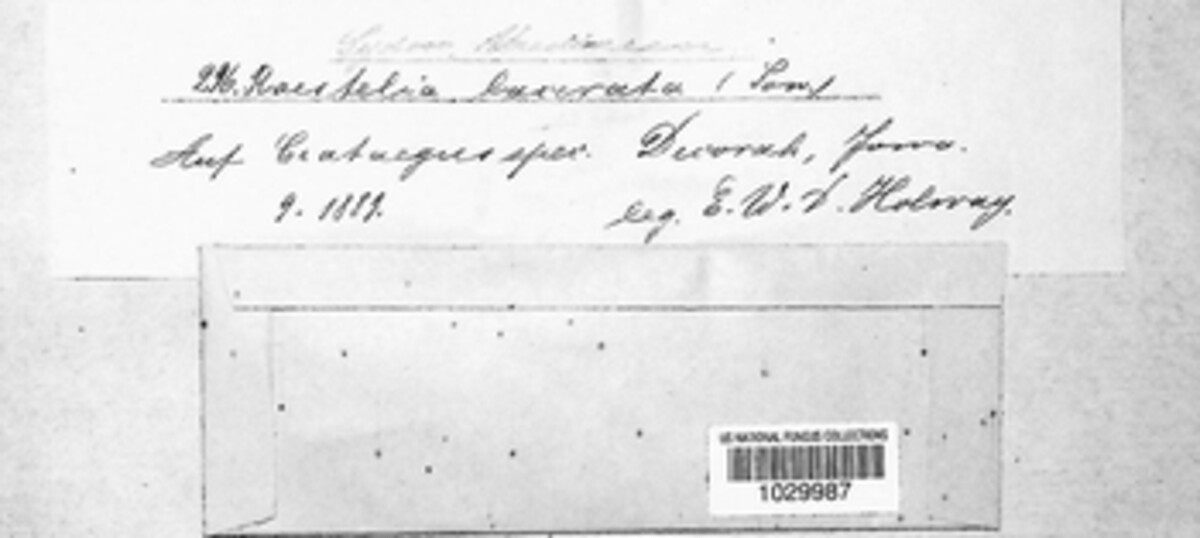 Sydow,
296. Roestelia lacerata (Sow)
Auf Crataegus spec. Decorah, Jowa.
9. 1889. leg. E. W. D. Holway.
US NATIONAL FUNGUS COLLECTIONS
1029987